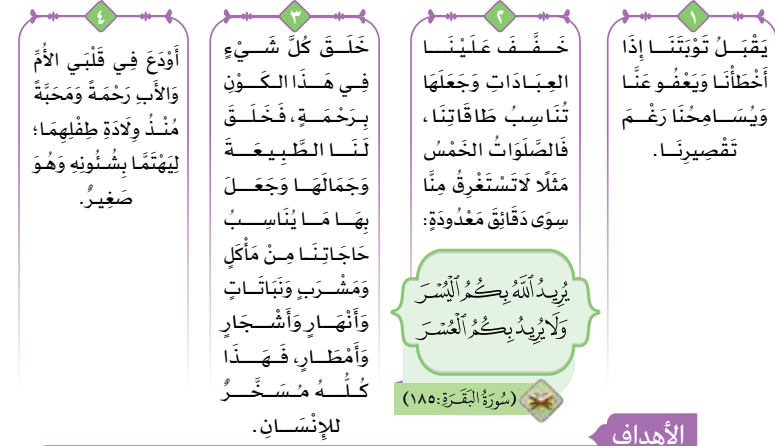 ١
يَقْبَلُ تَوْبَتَنَا إِذَا
أَخْطَأْنَا وَيَعْفُو عَنَّا
وَيُسَامِحُنَا رَغْمَ
تَقْصِيرِنَا.
٢
خَفَّفَ عَلَيْنَا
العِبَادَاتِ وَجَعَلَهَا
تُنَاسِبُ طَاقَاتِنَا،
فَالصَّلَوَاتُ الخَمْسُ
مَثَلًا لَاتَسْتَغْرِقُ مِنَّا
سِوَى دَقَائِقَ مَعْدُودَةٍ:
يُرِيدُ ٱللَّهُ بِكُمُ ٱلْيُسْرَ
وَلَا يُرِيدُ بِكُمُ ٱلْعُسْرَ
(سُورَةُ البَقَرَةِ: ١٨٥)
٣
خَلَقَ كُلَّ شَيْءٍ
فِي هَذَا الكَوْنِ
بِرَحْمَةٍ، فَخَلَقَ
لَنَا الطَّبِيعَةَ
وَجَمَالَهَا وَجَعَلَ
بِهَا مَا يُنَاسِبُ
حَاجَاتِنَا مِنْ مَأْكَلٍ
وَمَشْرَبٍ وَنَبَاتَاتٍ
وَأَنْهَارٍ وَأَشْجَارٍ
وَأَمْطَارٍ، فَهَذَا
كُلُّهُ مُسَخَّرٌ
للإِنْسَانِ.
٤
أَوْدَعَ فِي قَلْبَيِ الأُمِّ
وَالأَبِ رَحْمَةً وَمَحَبَّةً
مُنْذُ وِلَادَةِ طِفْلِهِمَا؛
لِيَهْتَمَّا بِشُئُونِهِ وَهُوَ
صَغِيرٌ.
الأهداف